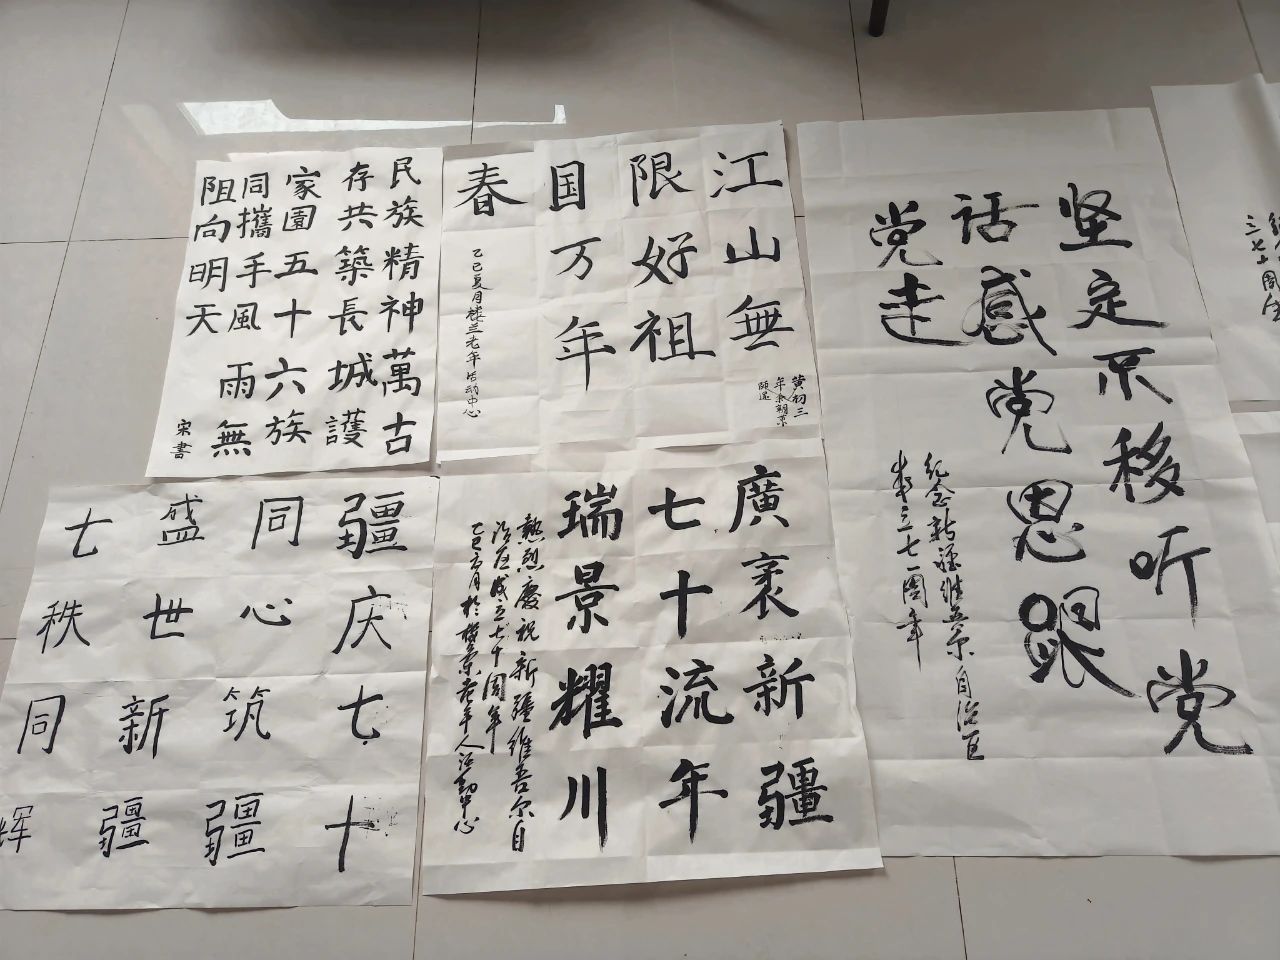 民族精神萬古
存共築長城護
家園五十六族
同攜手風雨無
阻向明天
宋書
江山無
限好祖
国万年
春
乙巳夏月楼兰老年活动中心
坚定不移听党
话感党恩跟
党走
纪念新疆维吾尔自治区
成立七十周年
疆庆七十
同心筑疆
盛世新疆
七秩同辉
廣袤新疆
七十流年
瑞景耀川
熱烈慶祝新疆維吾尔自
治区成立七十周年